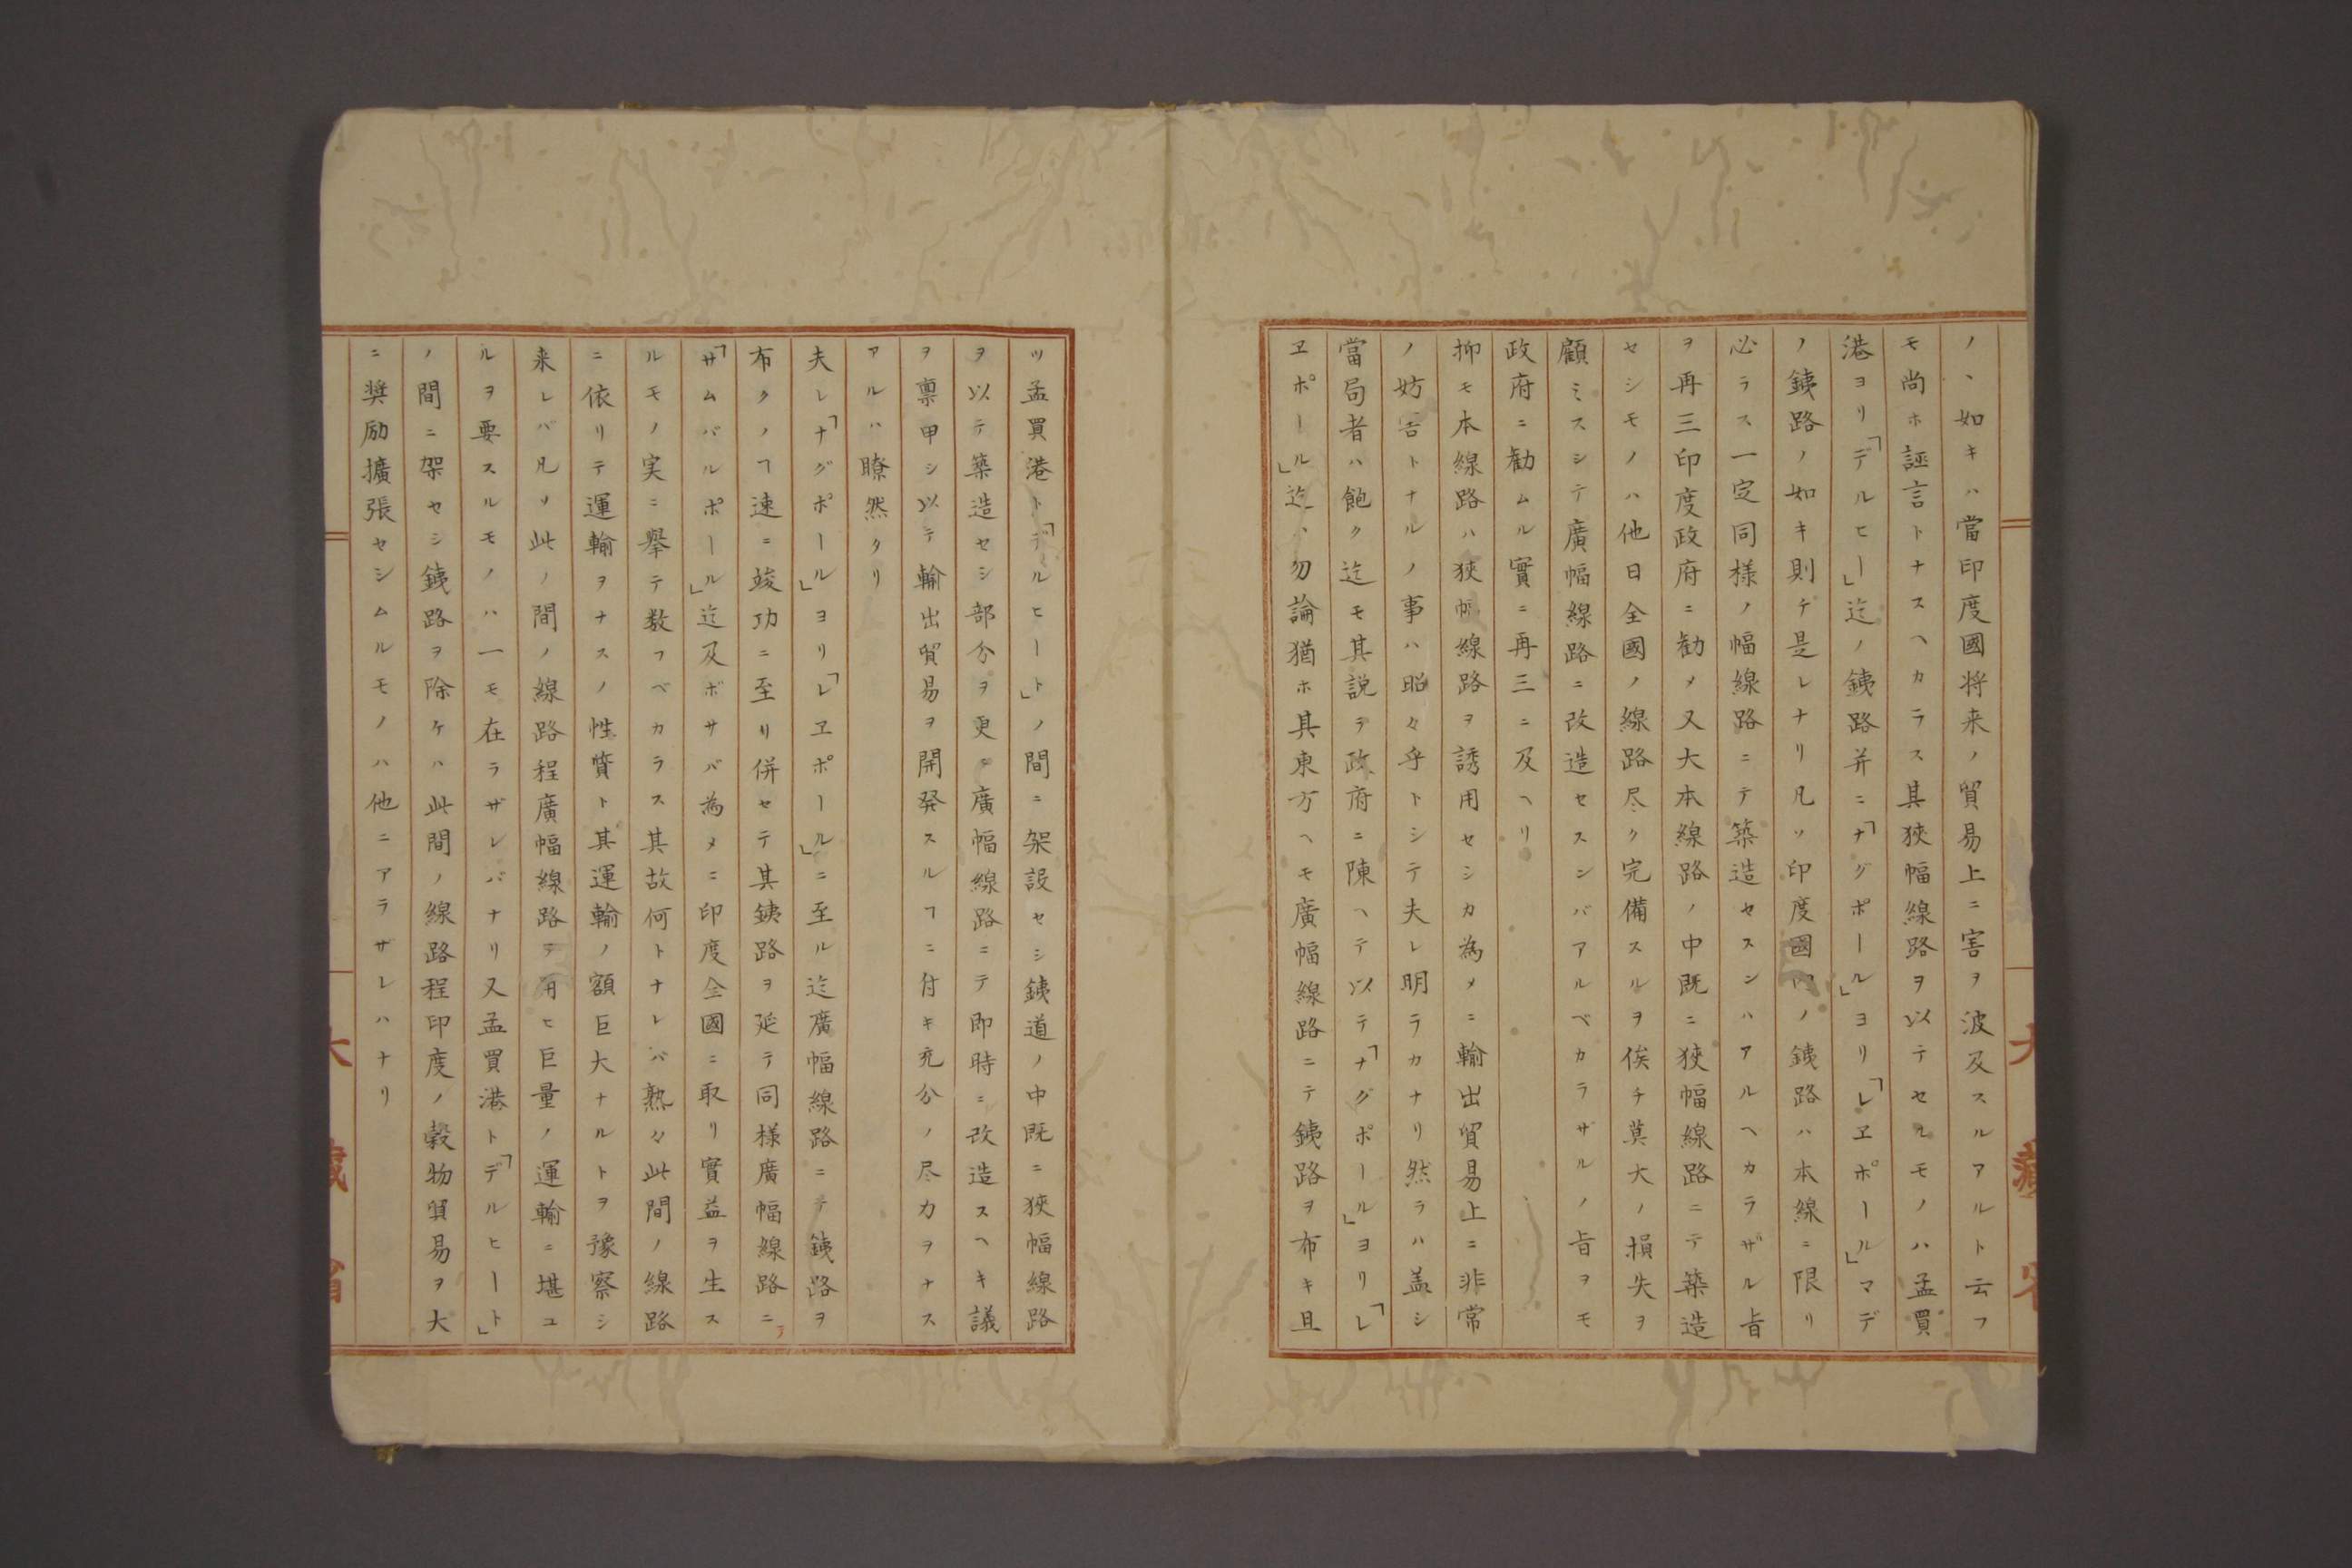 ノヽ如キハ當印度國将来ノ貿易上ニ害ヲ波及スルアルト云フ
モ尚ホ誣言トナスヘカラス其狹幅線路ヲ以テセルモノハ孟買
港ヨリ「デルヒー」迄ノ銕路并ニ「ナグポール」ヨリ「レヱポール」マデ
ノ銕路ノ如キ則チ是レナリ凡ソ印度國内ノ銕路ハ本線ニ限リ
必ラス一定同様ノ幅線路ニテ築造セスンハアルヘカラザル旨
ヲ再三印度政府ニ勧メ又大本線路ノ中既ニ狹幅線路ニテ築造
セシモノハ他日全國ノ線路尽ク完備スルヲ俟チ莫大ノ損失ヲ
顧ミスシテ廣幅線路ニ改造セスンバアルベカラザルノ旨ヲモ
政府ニ勧ムル實ニ再三ニ及ヘリ
抑モ本線路ハ狹幅線路ヲ誘用セシカ為メニ輸出貿易上ニ非常
ノ妨害トナルノ事ハ昭々乎トシテ夫レ明ラカナリ然ラハ盖シ
當局者ハ飽ク迄モ其説ヲ政府ニ陳ヘテ以テ「ナグポール」ヨリ「レ
ヱポール」迄ハ勿論猶ホ其東方ヘモ廣幅線路ニテ銕路ヲ布キ且
ツ孟買港ト「デルヒート」ノ間ニ架設セシ銕道ノ中既ニ狹幅線路
ヲ以テ築造セシ部分ヲ更ニ廣幅線路ニテ即時ニ改造スヘキ議
ヲ禀申シ以テ輸出貿易ヲ開発スルヿニ付キ充分ノ尽力ヲナス
アルハ瞭然タリ
夫レ「ナグポール」ヨリ「レヱポール」ニ至ル迄廣幅線路ニテ銕路ヲ
布クノヿ速ニ竣功ニ至リ併セテ其銕路ヲ延テ同様廣幅線路ニテ
「サムバルポール」迄及ボサバ為メニ印度全國ニ取リ實益ヲ生ス
ルモノ実ニ擧テ数フベカラス其故何トナレバ熟々此間ノ線路
ニ依リテ運輸ヲナスノ性質ト其運輸ノ額巨大ナルトヲ豫察シ
来レバ凡ソ此ノ間ノ線路程廣幅線路ヲ用ヒ巨量ノ運輸ニ堪ユ
ルヲ要スルモノハ一モ在ラザレバナリ又孟買港ト「デルヒート」
ノ間ニ架セシ銕路ヲ除ケハ此間ノ線路程印度ノ穀物貿易ヲ大
ニ奨励擴張セシムルモノハ他ニアラザレハナリ
大藏省